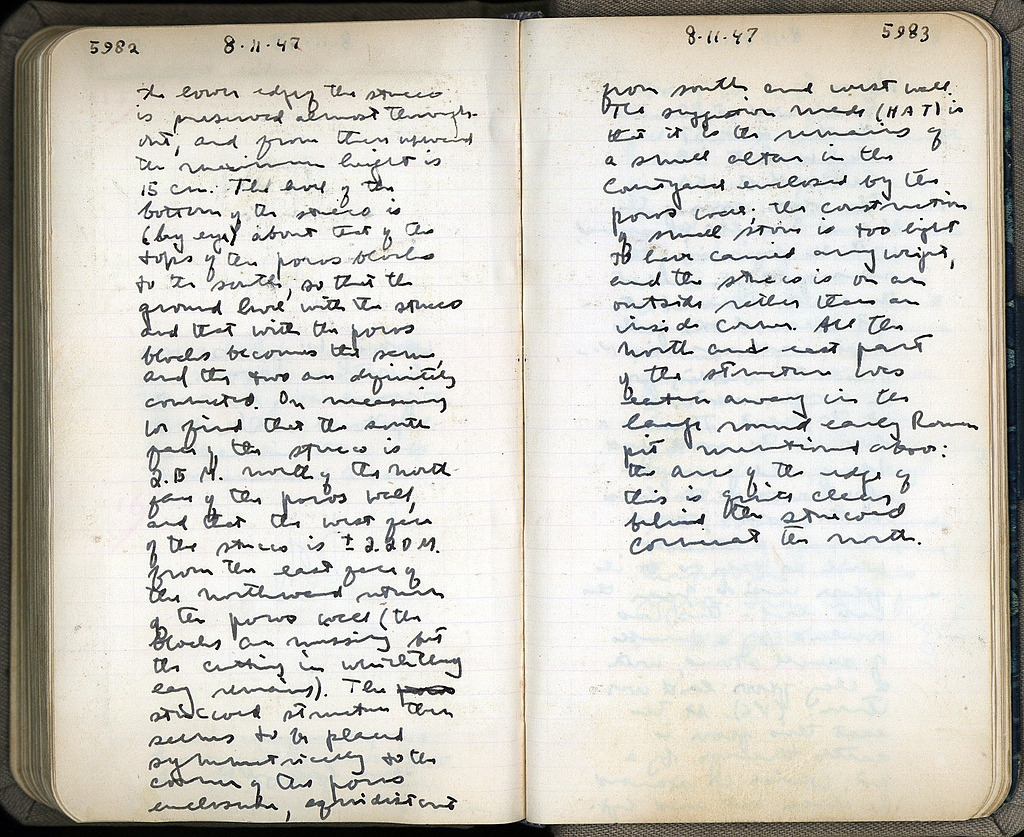 5982 8·11·47
the lower edge, the stucco
is preserved almost through-
out, and from there upward
the maximum height is
15 cm. The level of the
bottom of the stucco is
(by eye) about that of the
tops of the poros blocks
to the south, so that the
ground level with the stucco
and that with the poros
blocks becomes the same,
and the two are definitely
connected. On measuring
we find that the south
face of the stucco is
2.15 M. north of the north
face of the poros wall,
and that the west face
of the stucco is ± 2.20 M.
from the east face of
the northward return
of the poros wall (the
blocks are missing but
the cutting in which they
lay remains). The poros
stuccoed structure then
seems to be placed
symmetrically to the
corner of the poros
enclosure, equidistant
8·11·47 5983
from south and west wall.
The suggestion made (HAT) is
that it is the remains of
a small altar in the
courtyard enclosed by the
poros wall; the construction
of small stones is too light
to have carried any weight,
and the stucco is on an
outside rather than an
inside corner. All the
north and east part
of the structure was
eaten away in the
large round early Roman
pit mentioned above:
the arc of the edge of
this is quite clear
behind the stuccoed
corner at the north.